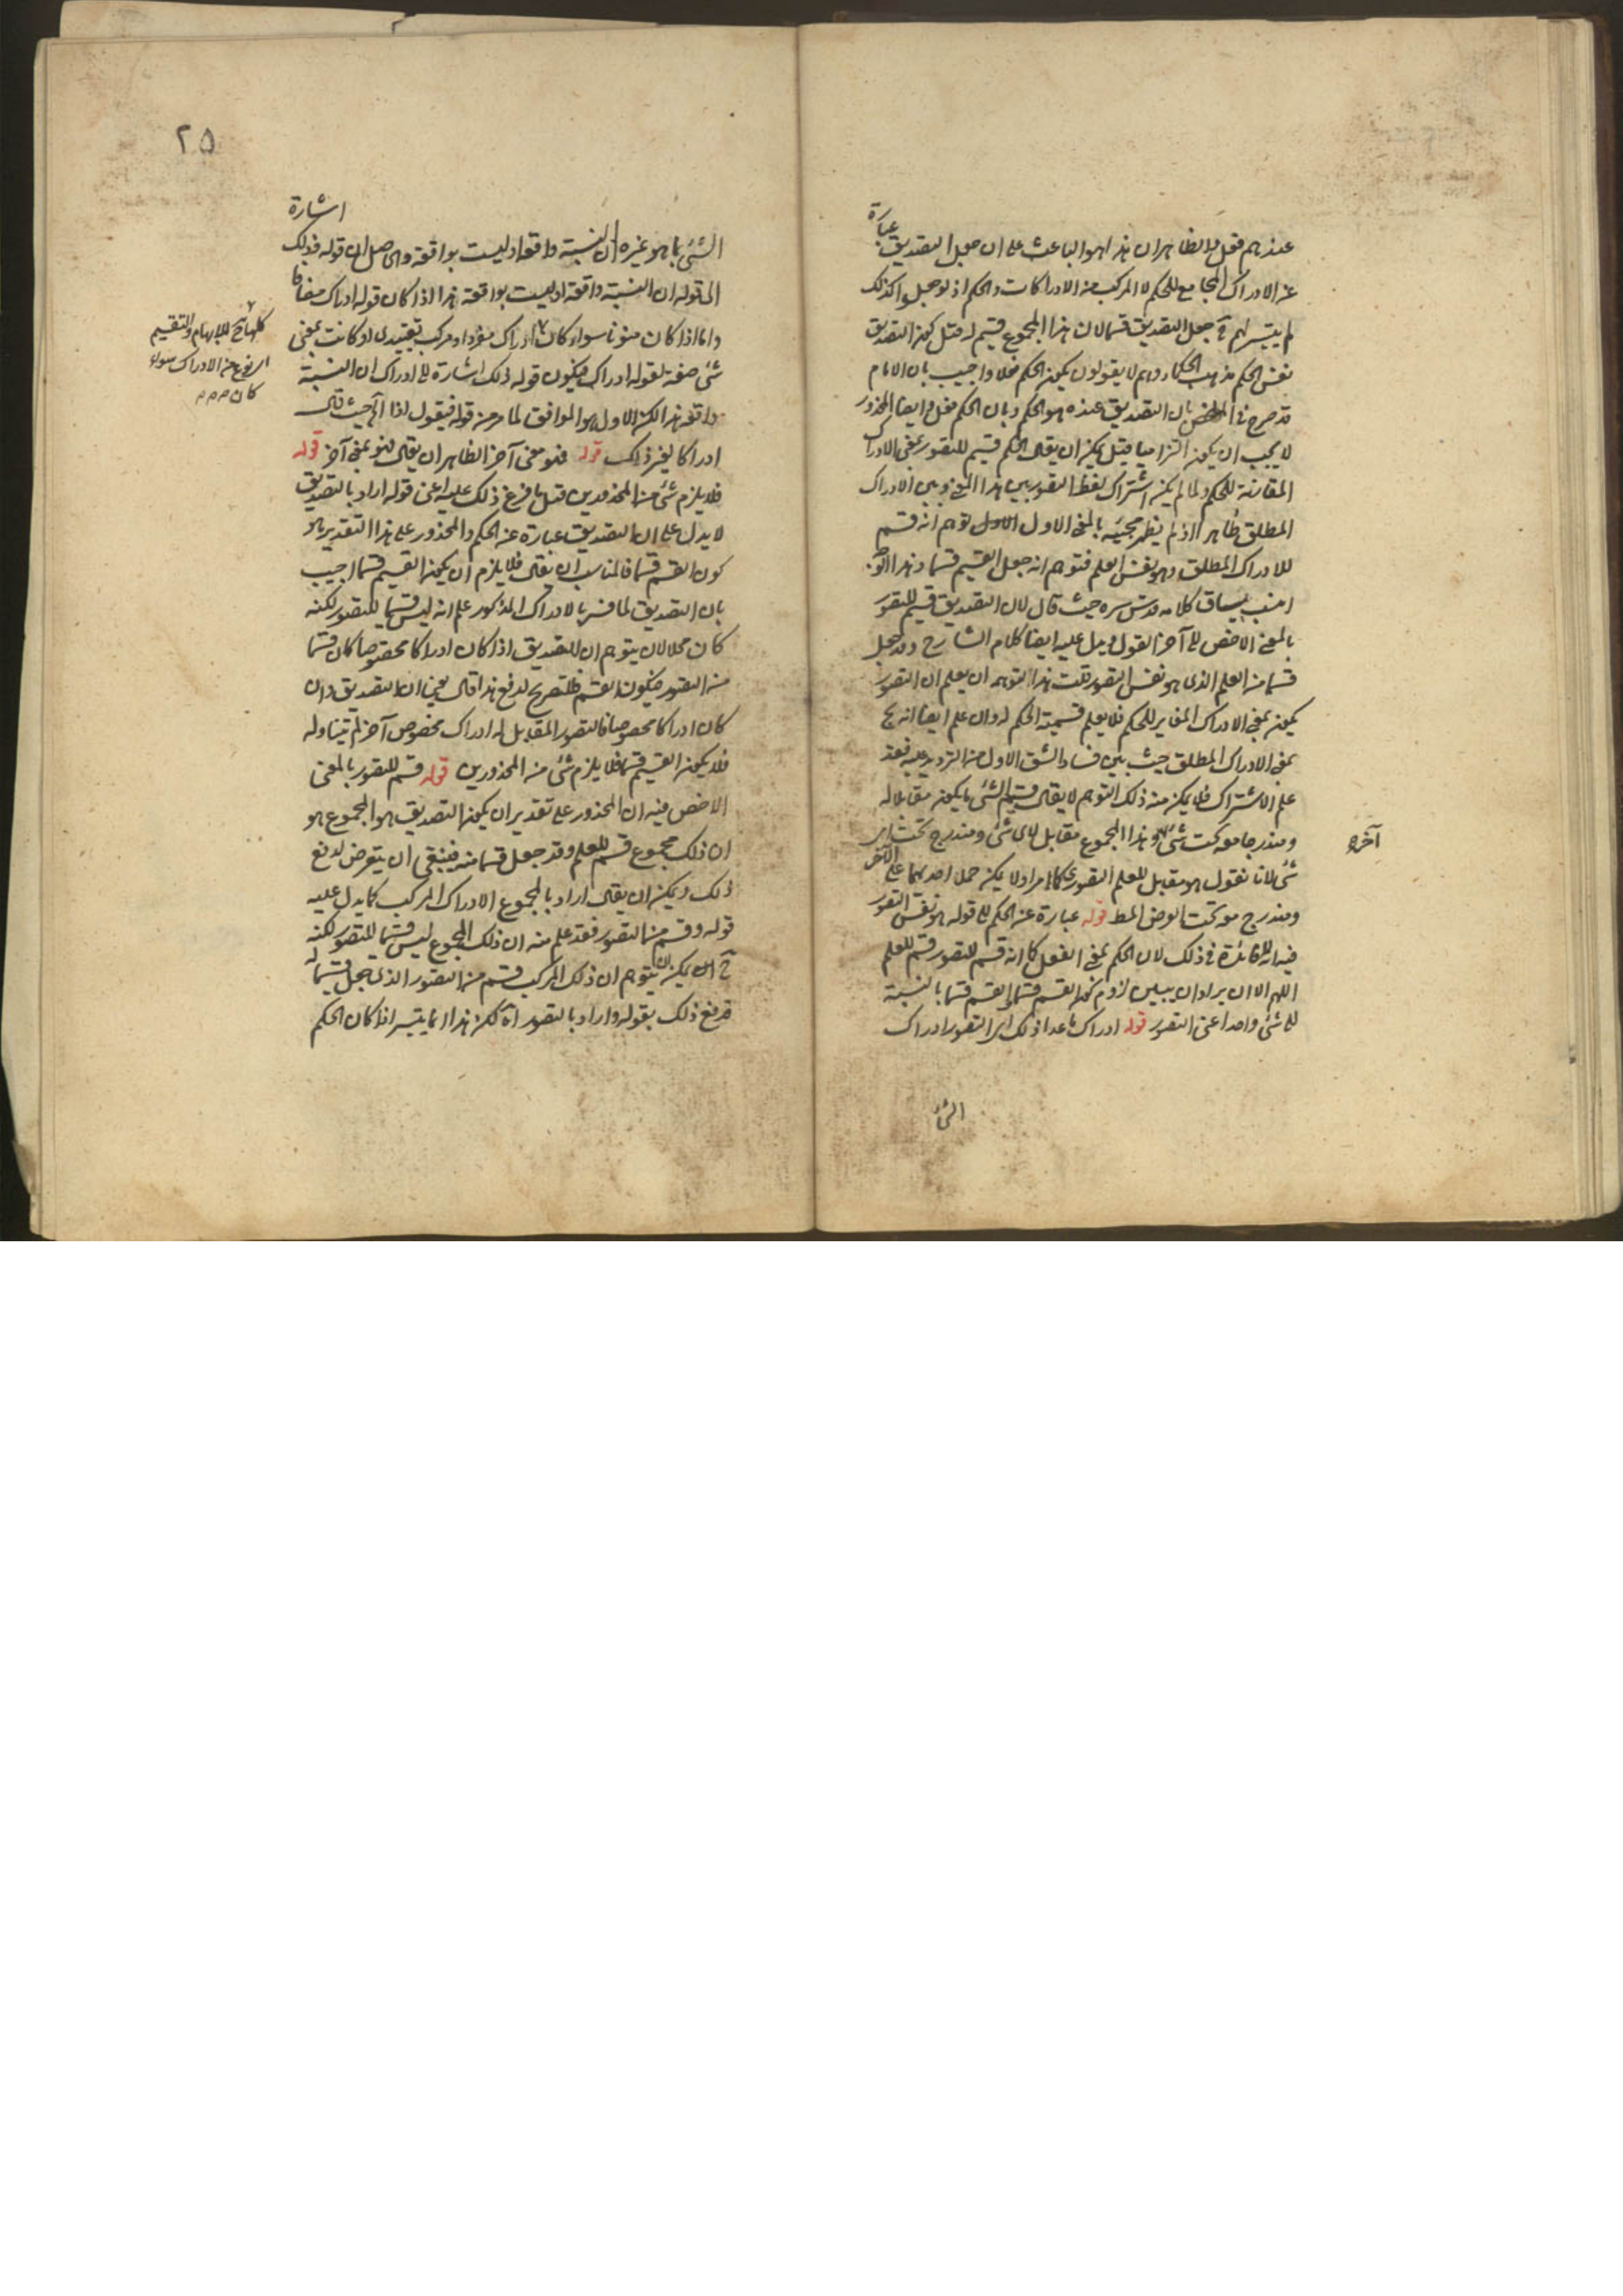 عندهم فعل فالظاهر ان هذا هو الباعث على ان جعل التصديق عبارة
عن الادراك المجامع للحكم لا المركب من الادراكات والحكم اذ لو جعلوا كذلك
لم يتيسر لهم جعل التصديق قسما لان هذا المجموع قسيم له قيل كون التصديق
نفس الحكم مذهب الحكماء وهم لا يقولون بكون الحكم فعلا واجيب بان الامام
قد صرح في الملخص بان التصديق عنده هو الحكم وبان الحكم فعل وايضا المحذور
لا يجب ان يكون التزاميا قيل يمكن ان يقال الحكم قسيم للتصور بمعنى الادراك
المقارنة للحكم ولما لم يكن اشتراك لفظ التصور بين هذا المعنى وبين الادراك
المطلق ظاهرا اذ لم يظهر مجيئه بالمعنى الاول توهم انه قسم
للادراك المطلق وهو نفس العلم فتوهم انه جعل القسيم قسما وهذا
انسب بسياق كلامه قدس سره حيث قال لان التصديق قسيم للتصور
بالمعنى الاخص الى آخر القول ويدل عليه ايضا كلام الشارح وقد جعل
قسما من العلم الذى هو نفس التصور قلت هذا التوهم ان يعلم ان التصور
يكون بمعنى الادراك المغاير للحكم فلا يعلم قسيمية الحكم له وان علم ايضا انه
بمعنى الادراك المطلق حيث بين فساد الشق الاول من الترديد عليه فقد
علم الاشتراك فلا يمكن منه ذلك التوهم لا يقال قسيم الشئ ما يكون مقابلا له
ومندرجا معه تحت شئ آخر وهذا المجموع مقابل لاى شئ ومندرج تحت اى
شئ لانا نقول هو مقابل للعلم التصورى كما مر اذ لا يمكن حمل احدهما على الآخر
ومندرج معه تحت العرض المط قوله عبارة عن الحكم الى قوله هو نفس التصور
فيه انه لا فائدة في ذلك لان الحكم بمعنى الفعل كما انه قسيم للتصور قسيم للعلم
اللهم الا ان يراد ان يبين لزوم كون القسم قسيما والقسيم قسما بالنسبة
الى شئ واحد اعنى التصور قوله ادراك ما عدا ذلك اى التصور ادراك
الشئ
آخر
٢٥
اشارة
الشئ بما هو غيره ان النسبة واقعة او ليست بواقعة والحاصل ان قوله فذلك
الى قوله ان النسبة واقعة او ليست بواقعة هذا اذا كان قوله ادراك مضافا
واما اذا كان منونا سواء كان ادراك مفرد او مركب تقييدى او كانت بمعنى
شئ صفة لقوله ادراك فيكون قوله ذلك اشارة الى ادراك ان النسبة
واقعة هذا لكن الاول هو الموافق لما مر من قوله فيقول اذا الخ حيث قال
ادراكا لغير ذلك قوله فهو معنى آخر الظاهر ان يقال فهو بمعنى آخر قوله
فلا يلزم شئ من المحذورين قيل ما فرع ذلك عليه اعنى قوله اراد بالتصديق
لا يدل على ان التصديق عبارة عن الحكم والمحذور على هذا التقدير هو
كون القسم قسيما فالمناسب ان يقال فلا يلزم ان يكون القسيم قسما اجيب
بان التصديق لما فسر بالادراك المذكور علم انه ليس قسيما للتصور لكنه
كان محلا لان يتوهم ان التصديق اذا كان ادراكا مخصوصا كان قسما
من التصور فيكون القسيم قسما فلتصريح لدفع هذا قال يعنى ان التصديق وان
كان ادراكا مخصوصا فالتصور المقابل له ادراك مخصوص آخر لم يتناوله
فلا يكون القسيم قسما فلا يلزم شئ من المحذورين قوله قسيم للتصور بالمعنى
الاخص فيه ان المحذور على تقدير ان يكون التصديق هو المجموع هو
ان ذلك مجموع قسيم للعلم وقد جعل قسما منه فينبغى ان يتعرض لدفع
ذلك ويمكن ان يقال اراد بالمجموع الادراك المركب كما يدل عليه
قوله وقسم من التصور فقد علم منه ان ذلك المجموع ليس قسيما للتصور لكنه
ح يمكن ان يتوهم ان ذلك المركب قسم من التصور الذى جعل قسيما له
فدفع ذلك بقوله واراد بالتصور اه لكن هذا انما يتيسر اذا كان الحكم
للابهام والتقسيم
اى نوع من الادراك سواء
كان